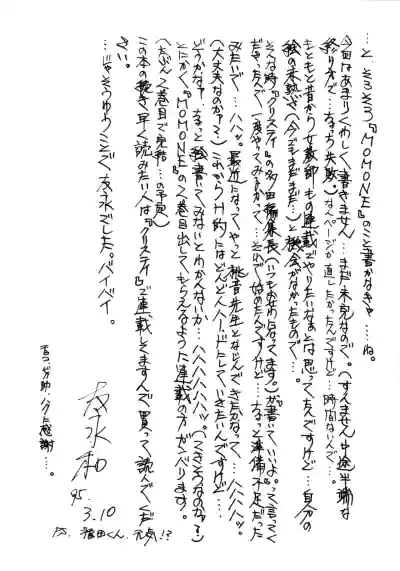 …と、そろそろ『MOMONE』のこと書かなきゃ…ね。
今回はあまりくわしく書きません…まだ未完なので。(すんません中途半端な
終り方で…なっち失敗。なんページか直したかったんですけど…時間ないんで…
もともと昔から女教師もの連載でやりたいなぁとは思ってたんですけど…自分の
絵の未熟さ(今でもまだまだ…)と機会がなかったもので…。
そんな時『クリスティ』の多田編集長(いつもお世話になってます。)が書いていいよ。って言って
くださったんで一度やってみようかって…それで始めたんですけど…なぁっと準備不足だった
みたいで…ハハッ。最近になってやっと桃音先生となじんできたかなって…ハハハハッ。
(大丈夫なのか?…)これからH的にはどんどんハードにしていきたいんですけど…
どうかなァ。なぁっと絵書いてみないとわかんないか…ハハハハハッ。(できそうなのか?…)
とにかく『MOMONE』の2巻目出してもらえるように連載の方がんばります。
(たぶん2巻目で完結…の予定)
この本の続き早く読みたい人は『クリスティ』で連載してますんで買って読んでくだ
さい。
…じゃそうゆうことで友永でした。バイバイ。
友永和
'95.
3.10
P.S. 稲田くん、元気!?